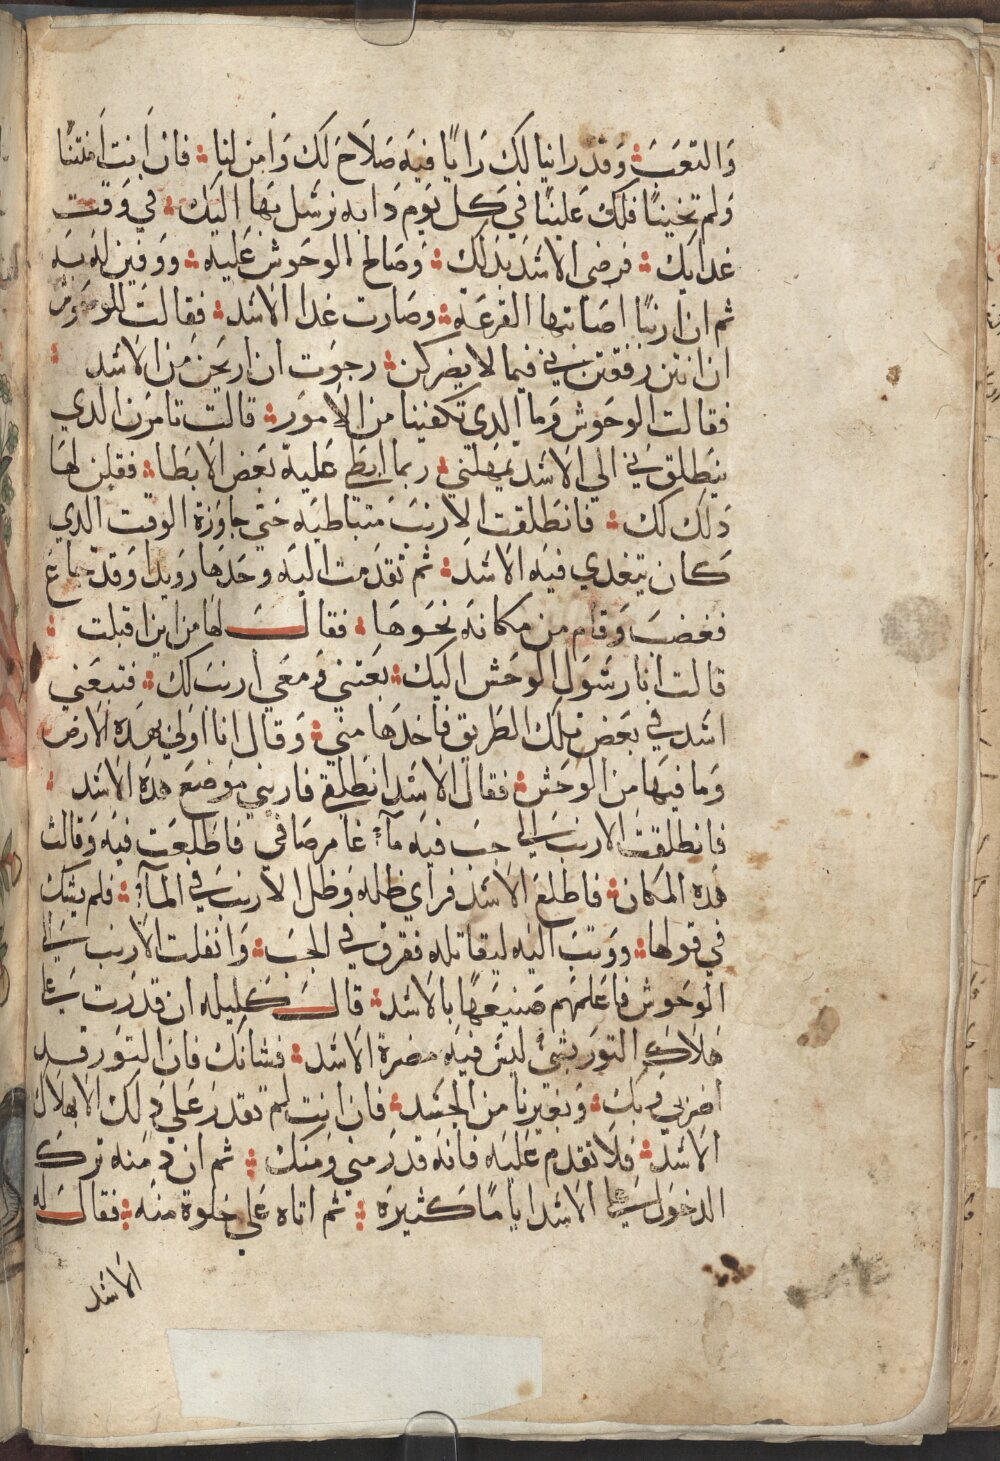 والتعب وقد راينا لك رايًا فيه صلاح لك وامن لنا فان انت امنتنا
ولم تخيننا فلك علينا في كل يوم دابه نرسل بها اليك في وقت
غدايك فرضي الاسد بذلك وصالح الوحوش عليه ووفين له به
ثم ان ارنبًا اصابتها القرعه وصارت غدا الاسد فقالت للوحوش
ان انتن رفقتن بي فيما لا يضركن رجوت ان اريحكن من الاسد
فقالت الوحوش وما الدي تكفينا من الامور قالت تامرن الدي
ينطلق بي الي الاسد يمهلني ربما ابطي عليه بعض الابطا فقلن لها
دلك لك فانطلقت الارنب متباطيه حتي جاوزة الوقت الدي
كان يتغدي فيه الاسد ثم تقدمت اليه وحدها رويدا وقد جاع
فغضب وقام من مكانه نحوها فقال لها من اين اقبلت
قالت انا رسول الوحش اليك بعتني ومعي ارنب لك فتبعني
اسد في بعض تلك الطريق فاخدها مني وقال انا اولي بهده الارض
وما فيها من الوحش فقال الاسد انطلقي فاريني موضع هده الاسد
فانطلقت الارنب الي جب فيه مآء غامر صافي فاطلعت فيه وقالت
هده المكان فاطلع الاسد فراي ظله وظل الارنب في المآء فلم يشك
في قولها ووتب اليه ليقاتله فغرق في الجب وانفلت الارنب الي
الوحوش فاعلمهم صنيعها بالاسد قال كليله ان قدرت علي
هلاك التور بشي ليس فيه مضرة الاسد فشانك فان التور قد
اضر بي وبك وبغيرنا من الجسد فان انت لم تقدر علي دلك الا بهلاك
الاسد فلا تقدم عليه فانه قدر مني ومنك ثم ان دمنه ترك
الدخول علي الاسد ايامًا كثيرة ثم اتاه علي خلوة منه فقال له
الاسد